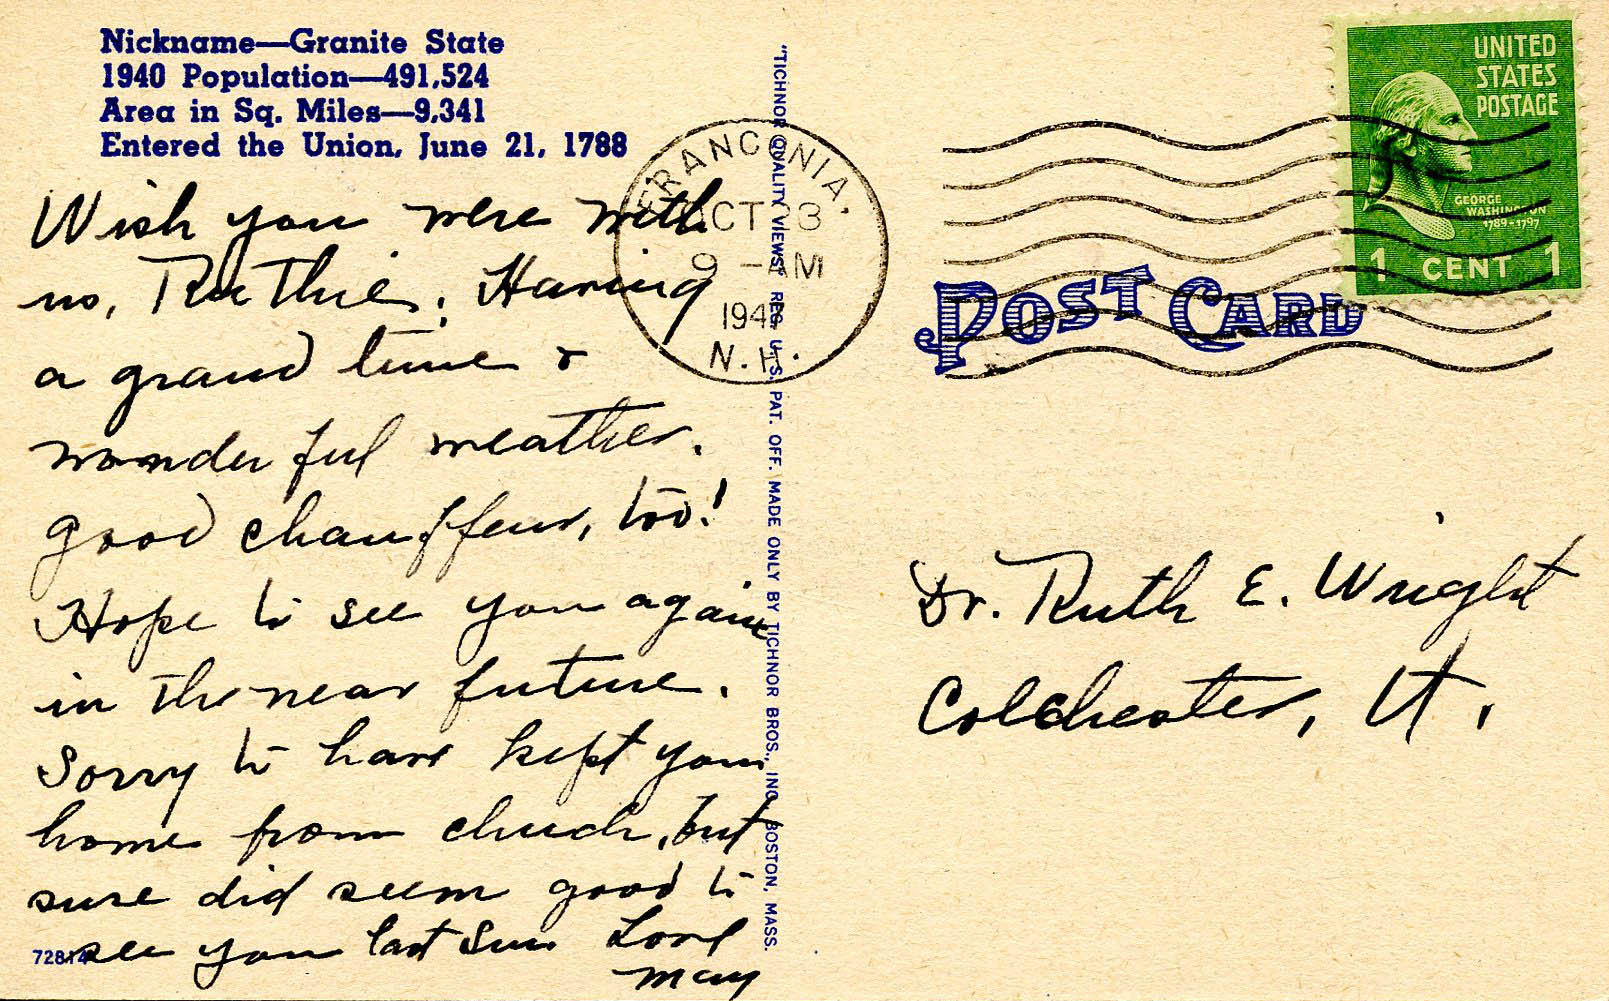 Nickname—Granite State
1940 Population—491,524
Area in Sq. Miles—9,341
Entered the Union, June 21, 1788
Wish you were with
us, Ruthie. Having
a grand time &
wonderful weather.
Good chauffeur, too!
Hope to see you again
in the near future.
Sorry to have kept you
home from church, but
sure did seem good to
see you last Sun Love
May
72814
"TICHNOR QUALITY VIEWS" REG. U. S. PAT. OFF. MADE ONLY BY TICHNOR BROS., INC. BOSTON, MASS.
FRANCONIA.
OCT 23
9 - AM
N.H.
UNITED
STATES
POSTAGE
GEORGE
WASHINGTON
1789-1797
1 CENT 1
POST CARD
Dr. Ruth E. Wright
Colchester, Vt.